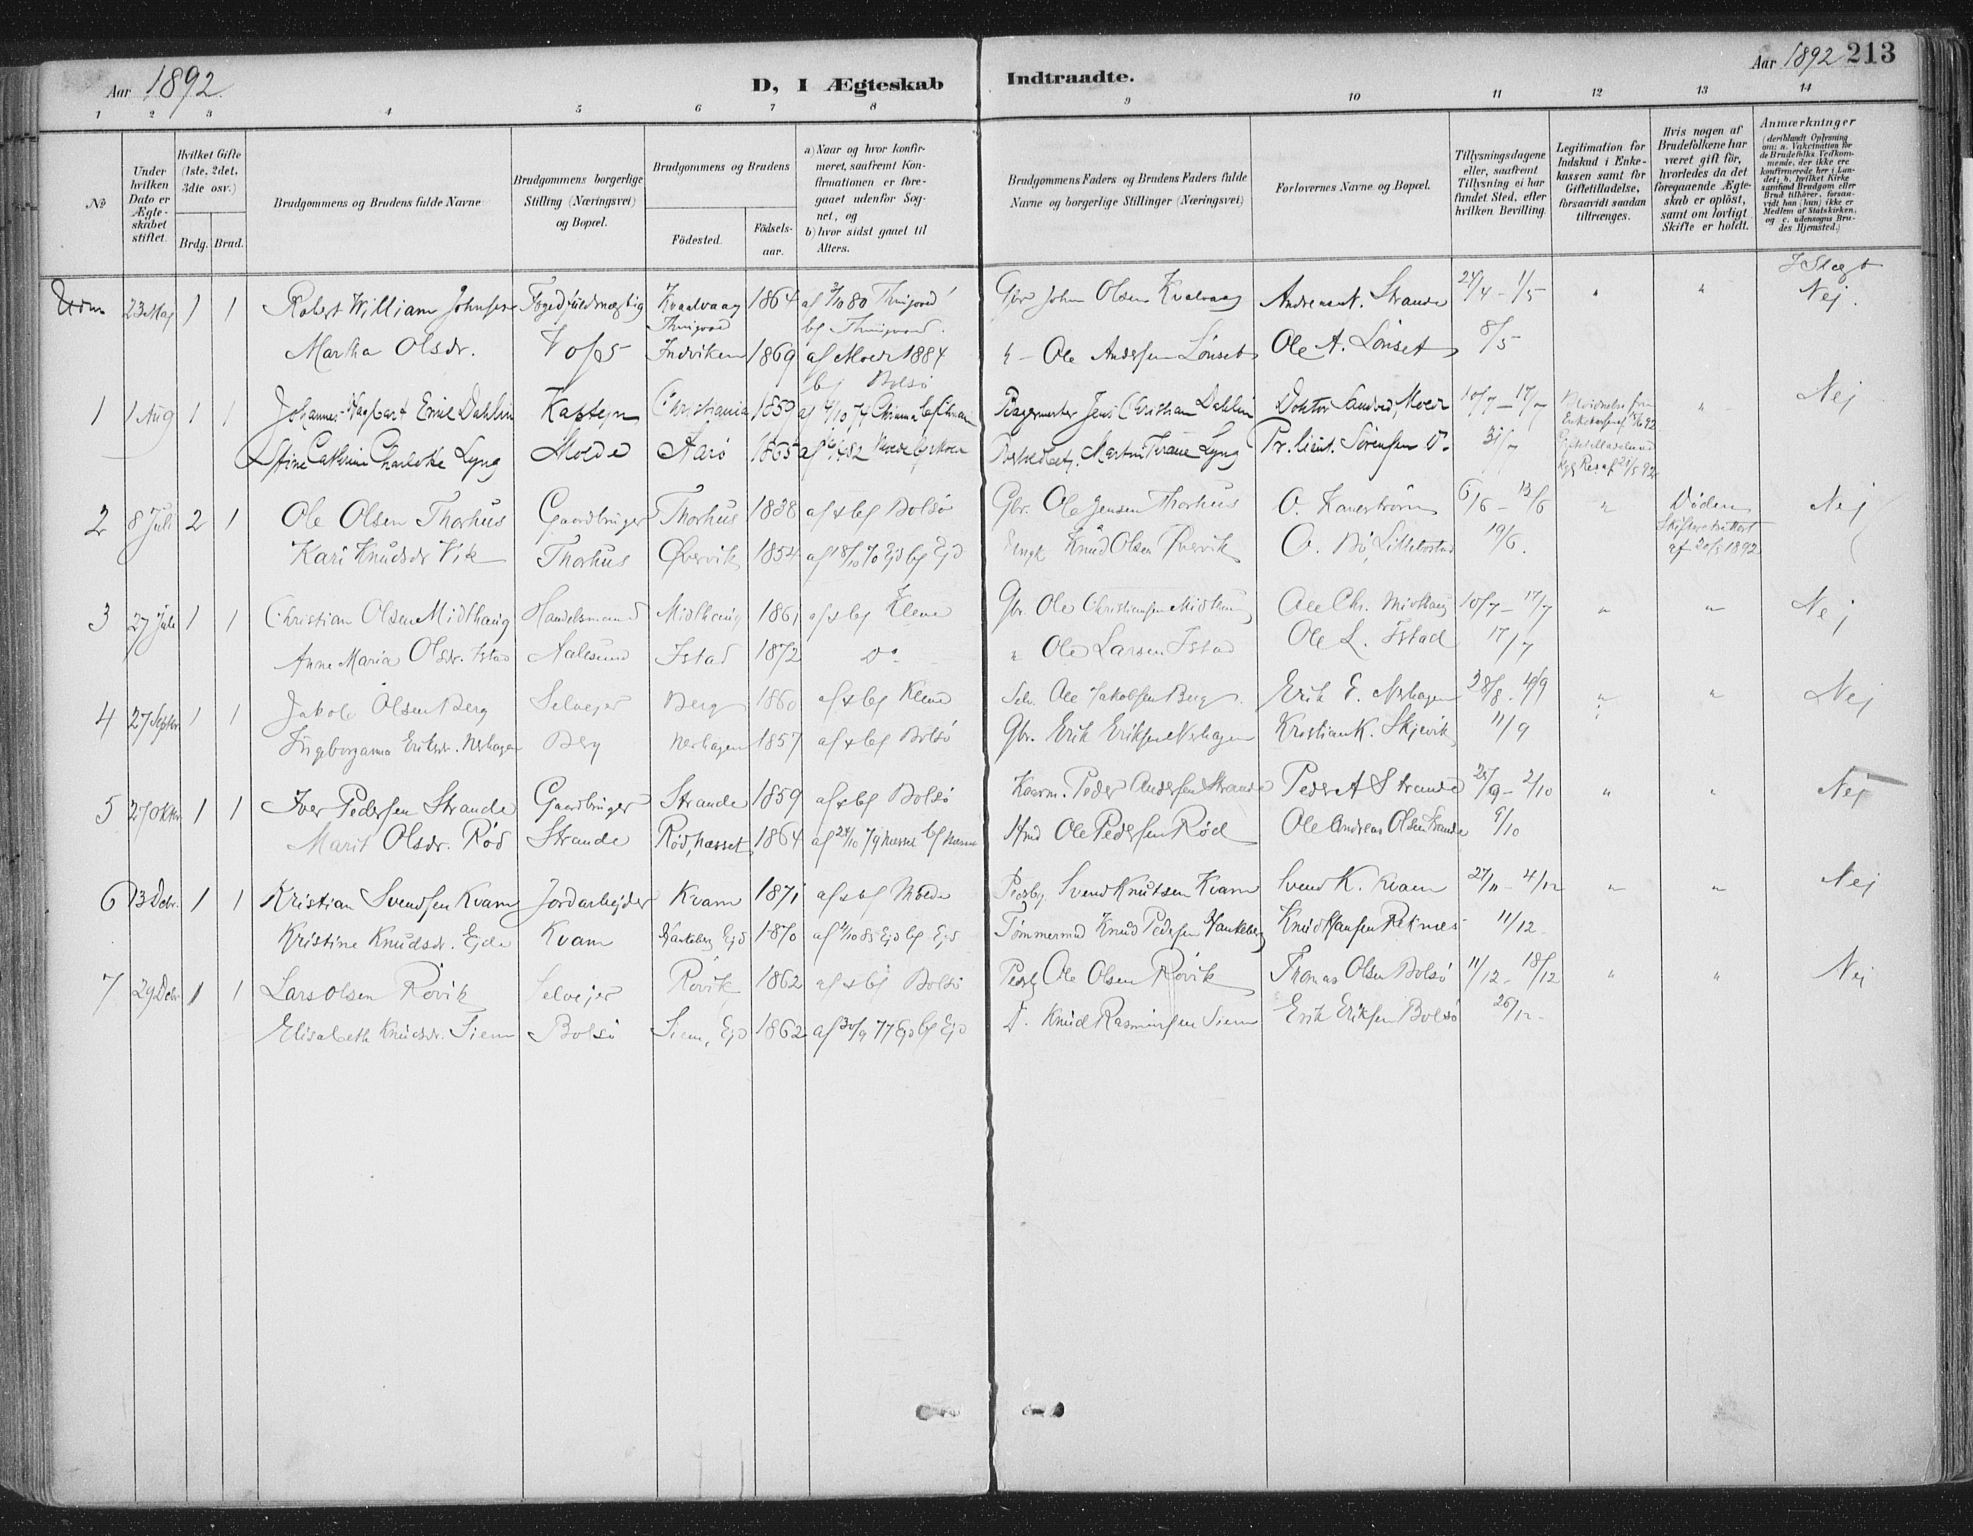 Aar 1892
D, I Ægteskab Indtraadte.
Aar 1892 213
1 2 3 4 5 6 7 8 9 10 11 12 13 14
№
Under hvilken Dato er Ægteskabet stiftet.
Hvilket Gifte (1ste, 2det, 3die osv.)
Brdg. Brud.
Brudgommens og Brudens fulde Navne
Brudgommens borgerlige Stilling (Næringsvei) og Bopæl.
Brudgommens og Brudens
Födested. Födselsaar.
a) Naar og hvor konfirmeret, saafremt Konfirmationen er foregaaet udenfor Sognet, og
b) hvor sidst gaaet til Alters.
Brudgommens Faders og Brudens Faders fulde Navne og borgerlige Stillinger (Næringsvei)
Forlovernes Navne og Bopæl.
Tillysningsdagene eller, saafremt Tillysning ei har fundet Sted, efter hvilken Bevilling.
Legitimation for Indskud i Enkekassen samt for Giftetilladelse, forsaavidt saadan tiltrænges.
Hvis nogen af Brudefolkene har været gift før, hvorledes da det foregaaende Ægteskab er oplöst, samt om lovligt Skifte er holdt.
Anmærkninger (deriblandt Oplysning om: a. Vakcination for de Brudefolks Vedkommende, der ikke ere konfirmerede her i Landet; b. hvilket Kirkesamfund Brudgom eller Brud tilhörer, forsaavidt han (hun) ikke er Medlem af Statskirken, og c. udensogns Brudes Hjemsted.)
I Slægt
23 Maj 1 1 Robert William Johnsen Fogedfuldmægtig Kvalvaag 1864 Gbr John Olsen Kvalvaag Andreas N. Strande 24/4 - 1/5 " " Nej.
Martha Olsdr. Vofs Indviken 1869 af Molde 1884 " - Ole Andersen Lönset Ole A. Lönset 8/5
bf Bolsö
1 1 Aug 1 1 Johannes Hagbart Emil Dahlin Kaptejn Christiania 1859 Bagermester Jens Christian Dahlin Doktor Sandved, Molde 10/7 - 17/7 " Nej
Stine Cathrine Charlotte Lyng Molde Aarö 1865 Martin Tirane Lyng Pr. lieut. Sörensen Do 31/7
2 8 Juli 2 1 Ole Olsen Thorhus Gaardbruger Thorhus 1838 af & bf Bolsö Gbr. Ole Jensen Thorhus O. Kanestrøm 6/6 - 12/6 " Døden Nej
Kari Knudsdr Vik Thorhus Øvervik 1854 af 18/10 70 Ejd bf Ejd Knud Olsen Øvervik O. Bö, Lillebostad 19/6. af 20/5 1892
3 27 Juli 1 1 Christian Olsen Midthaug Handelsmand Midthaug 1861 af & bf Kleve Gbr. Ole Christiansen Midthaug Ole Chr. Midthaug 10/7 - 17/7 " " Nej
Anne Maria Olsdr. Istad Aalesund Istad 1872 Do " Ole Larsen Istad Ole L. Istad 17/7
4 27 Septbr 1 1 Jakob Olsen Berg Selvejer Berg 1860 af & bf Kleve Selv. Ole Jakobsen Berg Erik E. Nerhagen 28/8 - 4/9 " " Nej
Ingborganna Eriksdr. Nerhagen Berg Nerhagen 1857 af & bf Bolsö Gbr. Erik Eriksen Nerhagen Kristian K. Skjevik 11/9
5 27 Oktbr. 1 1 Iver Pedersen Strande Gaardbruger Strande 1859 af & bf Bolsö Kaarm. Peder Andersen Strande Peder A Strande 25/9 - 2/10 " " Nej
Marit Olsdr. Röd Strande Röd, Næsset 1864 af 24/10 79 Næsset bf Næsset Hmd Ole Pedersen Röd Ole Andreas Olsen Strande 9/10
6 13 Debr. 1 1 Kristian Svendsen Kvam Jordarbejder Kvam 1871 af & bf Molde Svend Knutsen Kvam Svend K. Kvam 27/11 - 4/12 " " Nej
Kristine Knudsdr. Ejde Kvam 1870 Tömmermd Knud Pedersen Knud Hansen Reknes 11/12
7 29 Debr 1 1 Lars Olsen Rövik Selvejer Rövik 1862 af & bf Bolsö Ole Olsen Rövik Thomas Olsen Bolsö 11/12 - 18/12 " " Nej
Elisabeth Knudsdr. Siem Bolsö Siem, Ejd 1862 af 30/9 77 Ejd bf Ejd D. Knud Rasmussen Siem Erik Eriksen Bolsö 26/12